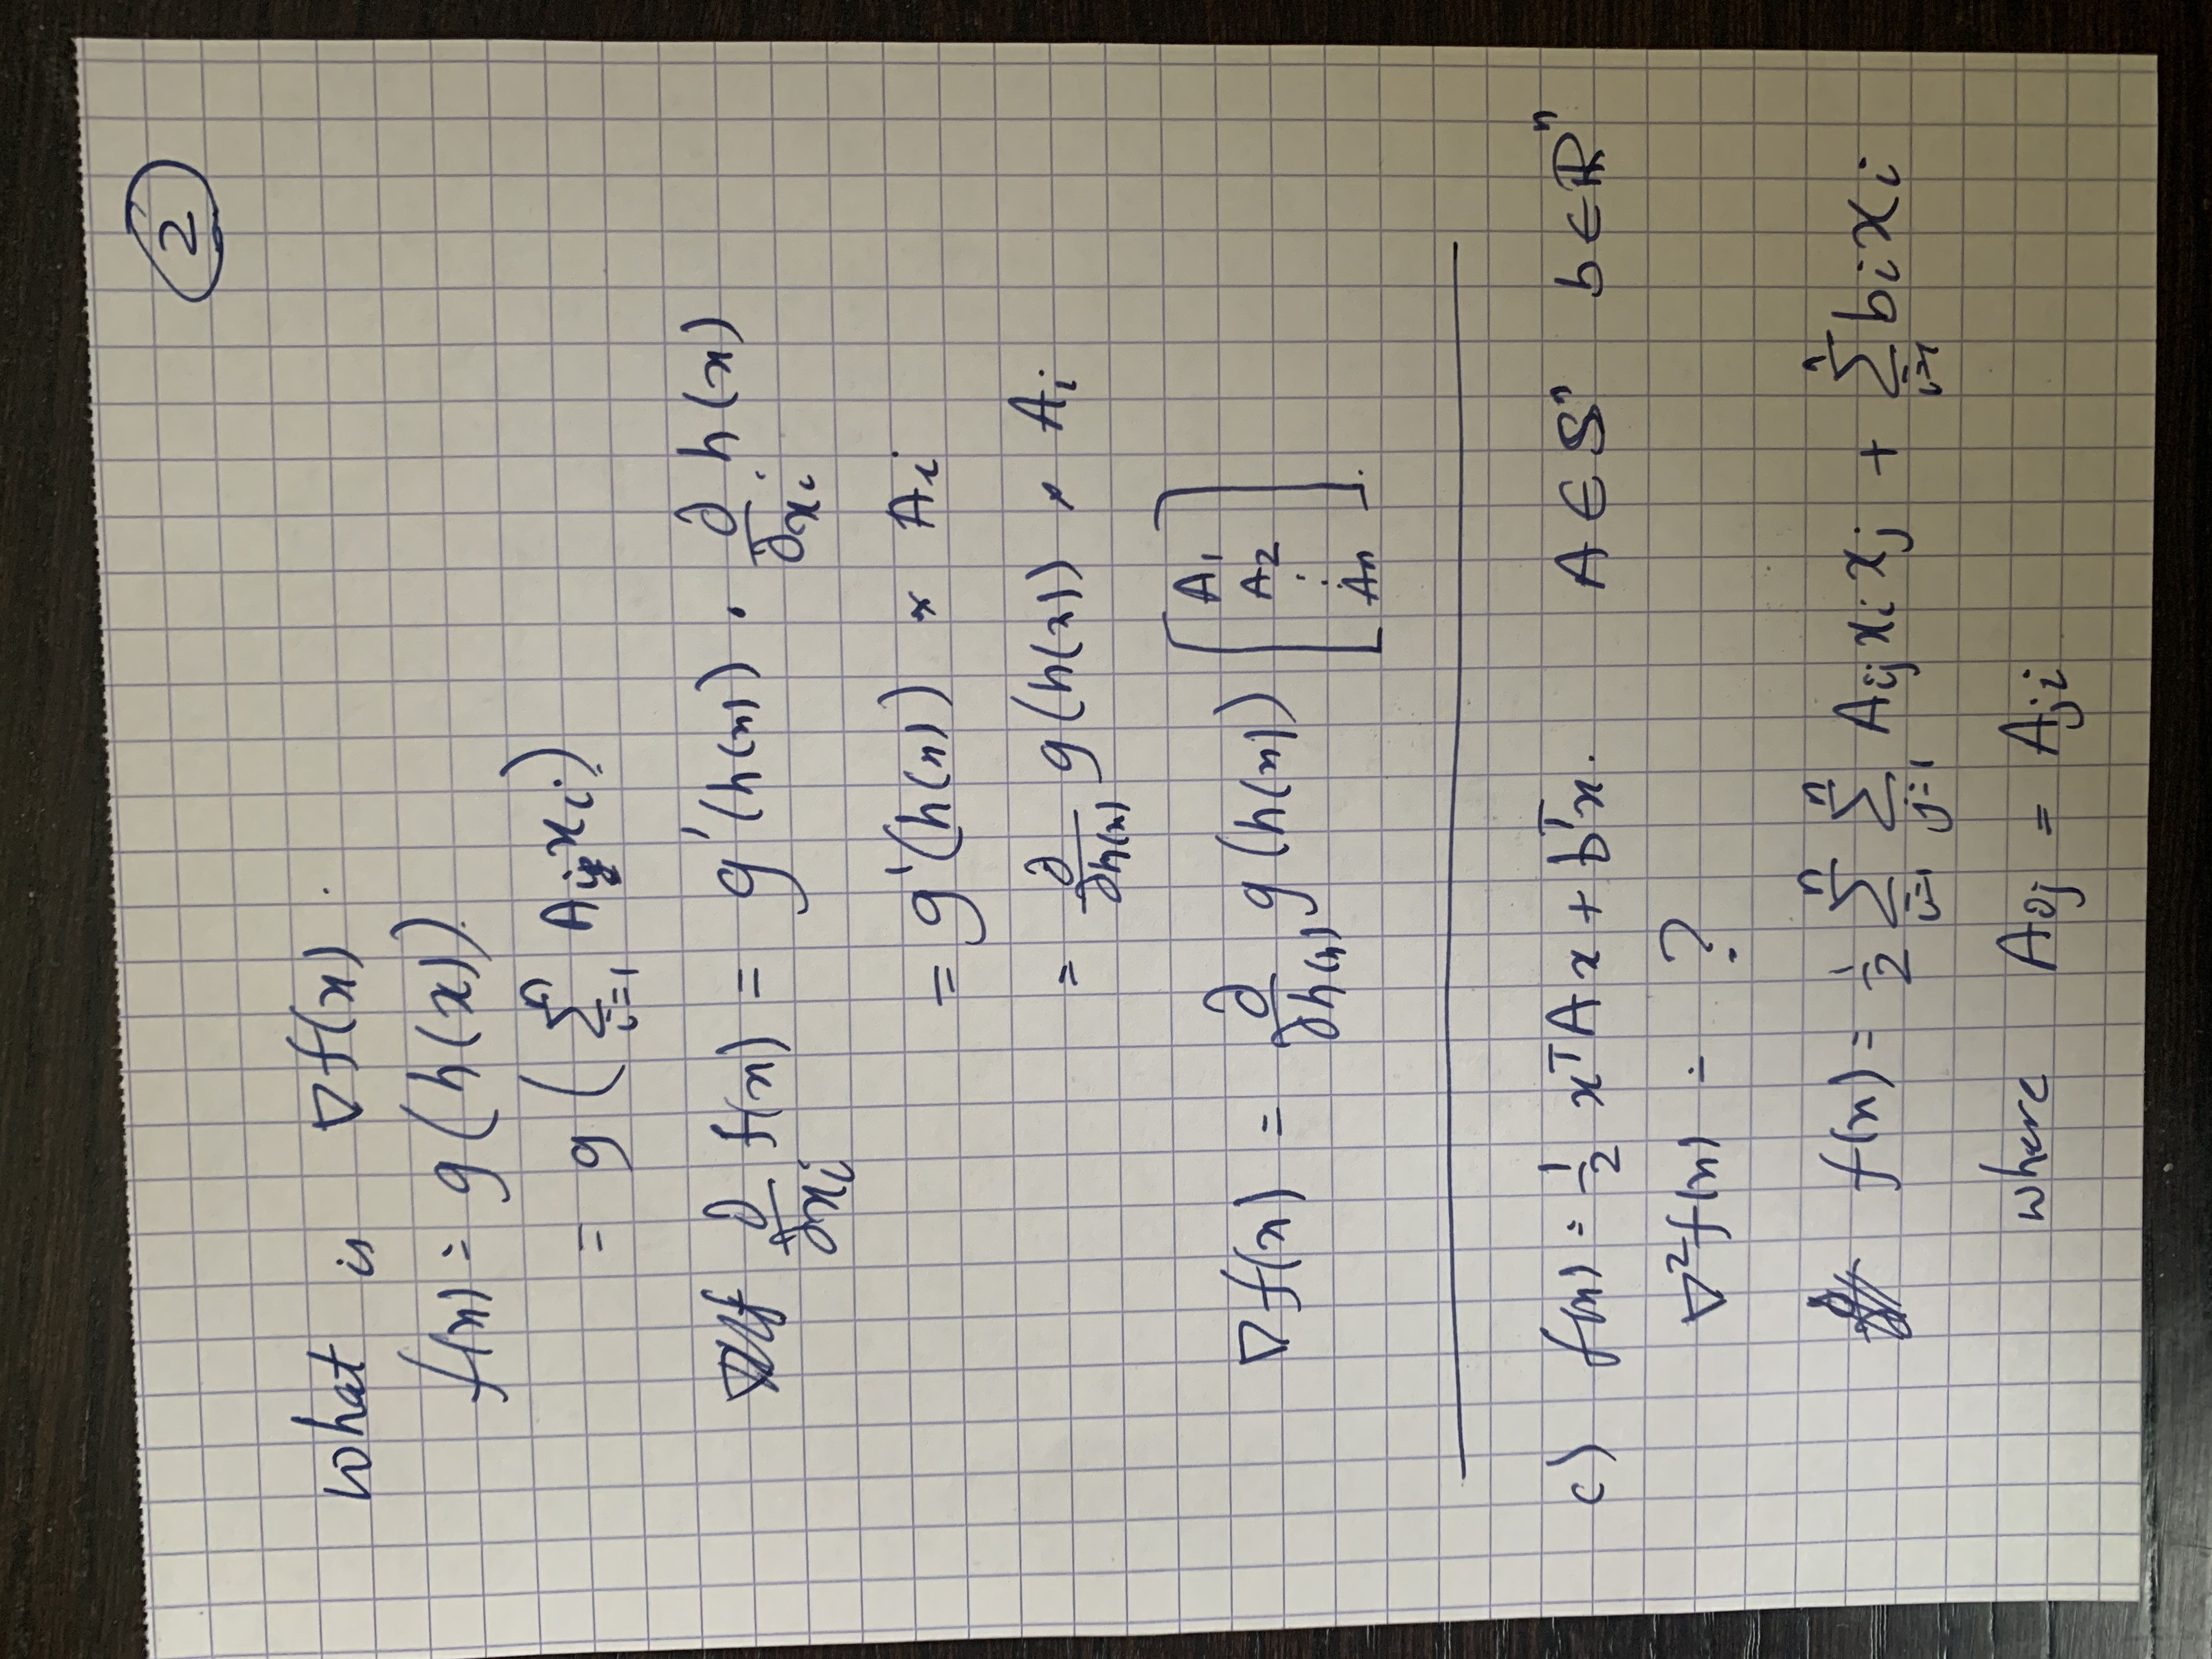 2
What is ∇f(x).
f(x) = g(h(x)).
= g( ∑_{i=1}^{n} A_i x_i )
∂/∂x_i f(x) = g'(h(x)) · ∂/∂x_i h(x)
= g'(h(x)) × A_i
= ∂/∂h(x) g(h(x)) × A_i
∇f(x) = ∂/∂h(x) g(h(x)) [ A_1 A_2 ⋮ A_n ].
c) f(x) = 1/2 x^T A x + b^T x. A ∈ S^n b ∈ R^n
∇²f(x) = ?
f(x) = 1/2 ∑_{i=1}^{n} ∑_{j=1}^{n} A_ij x_i x_j + ∑_{i=1}^{n} b_i x_i
where A_ij = A_ji